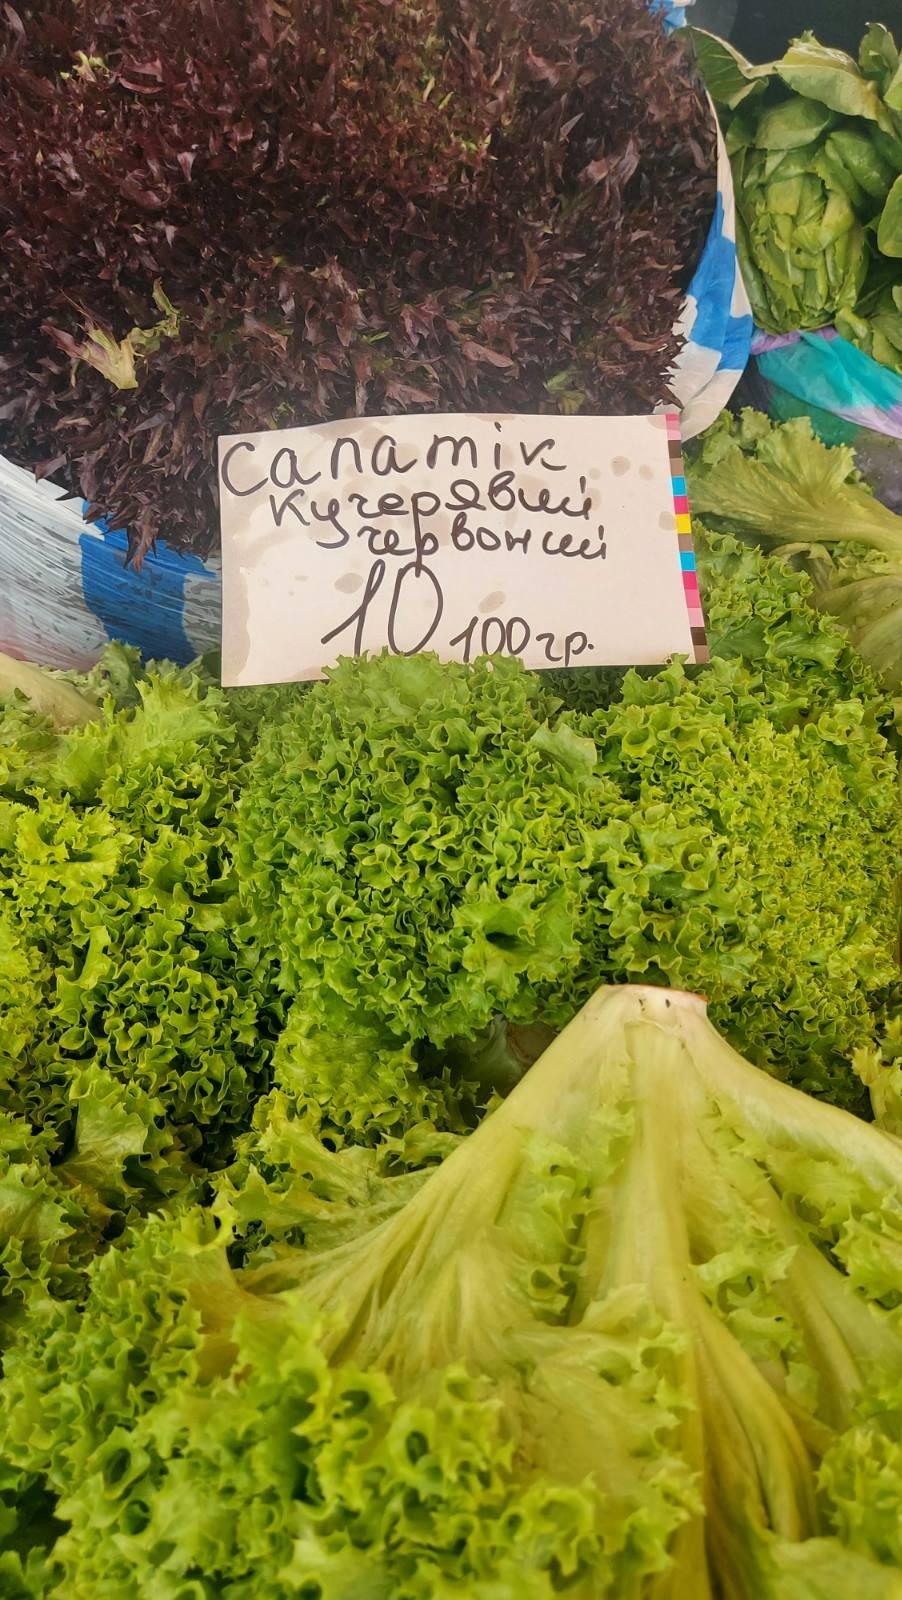 Салатік
кучерявий
червоний
10 100гр.